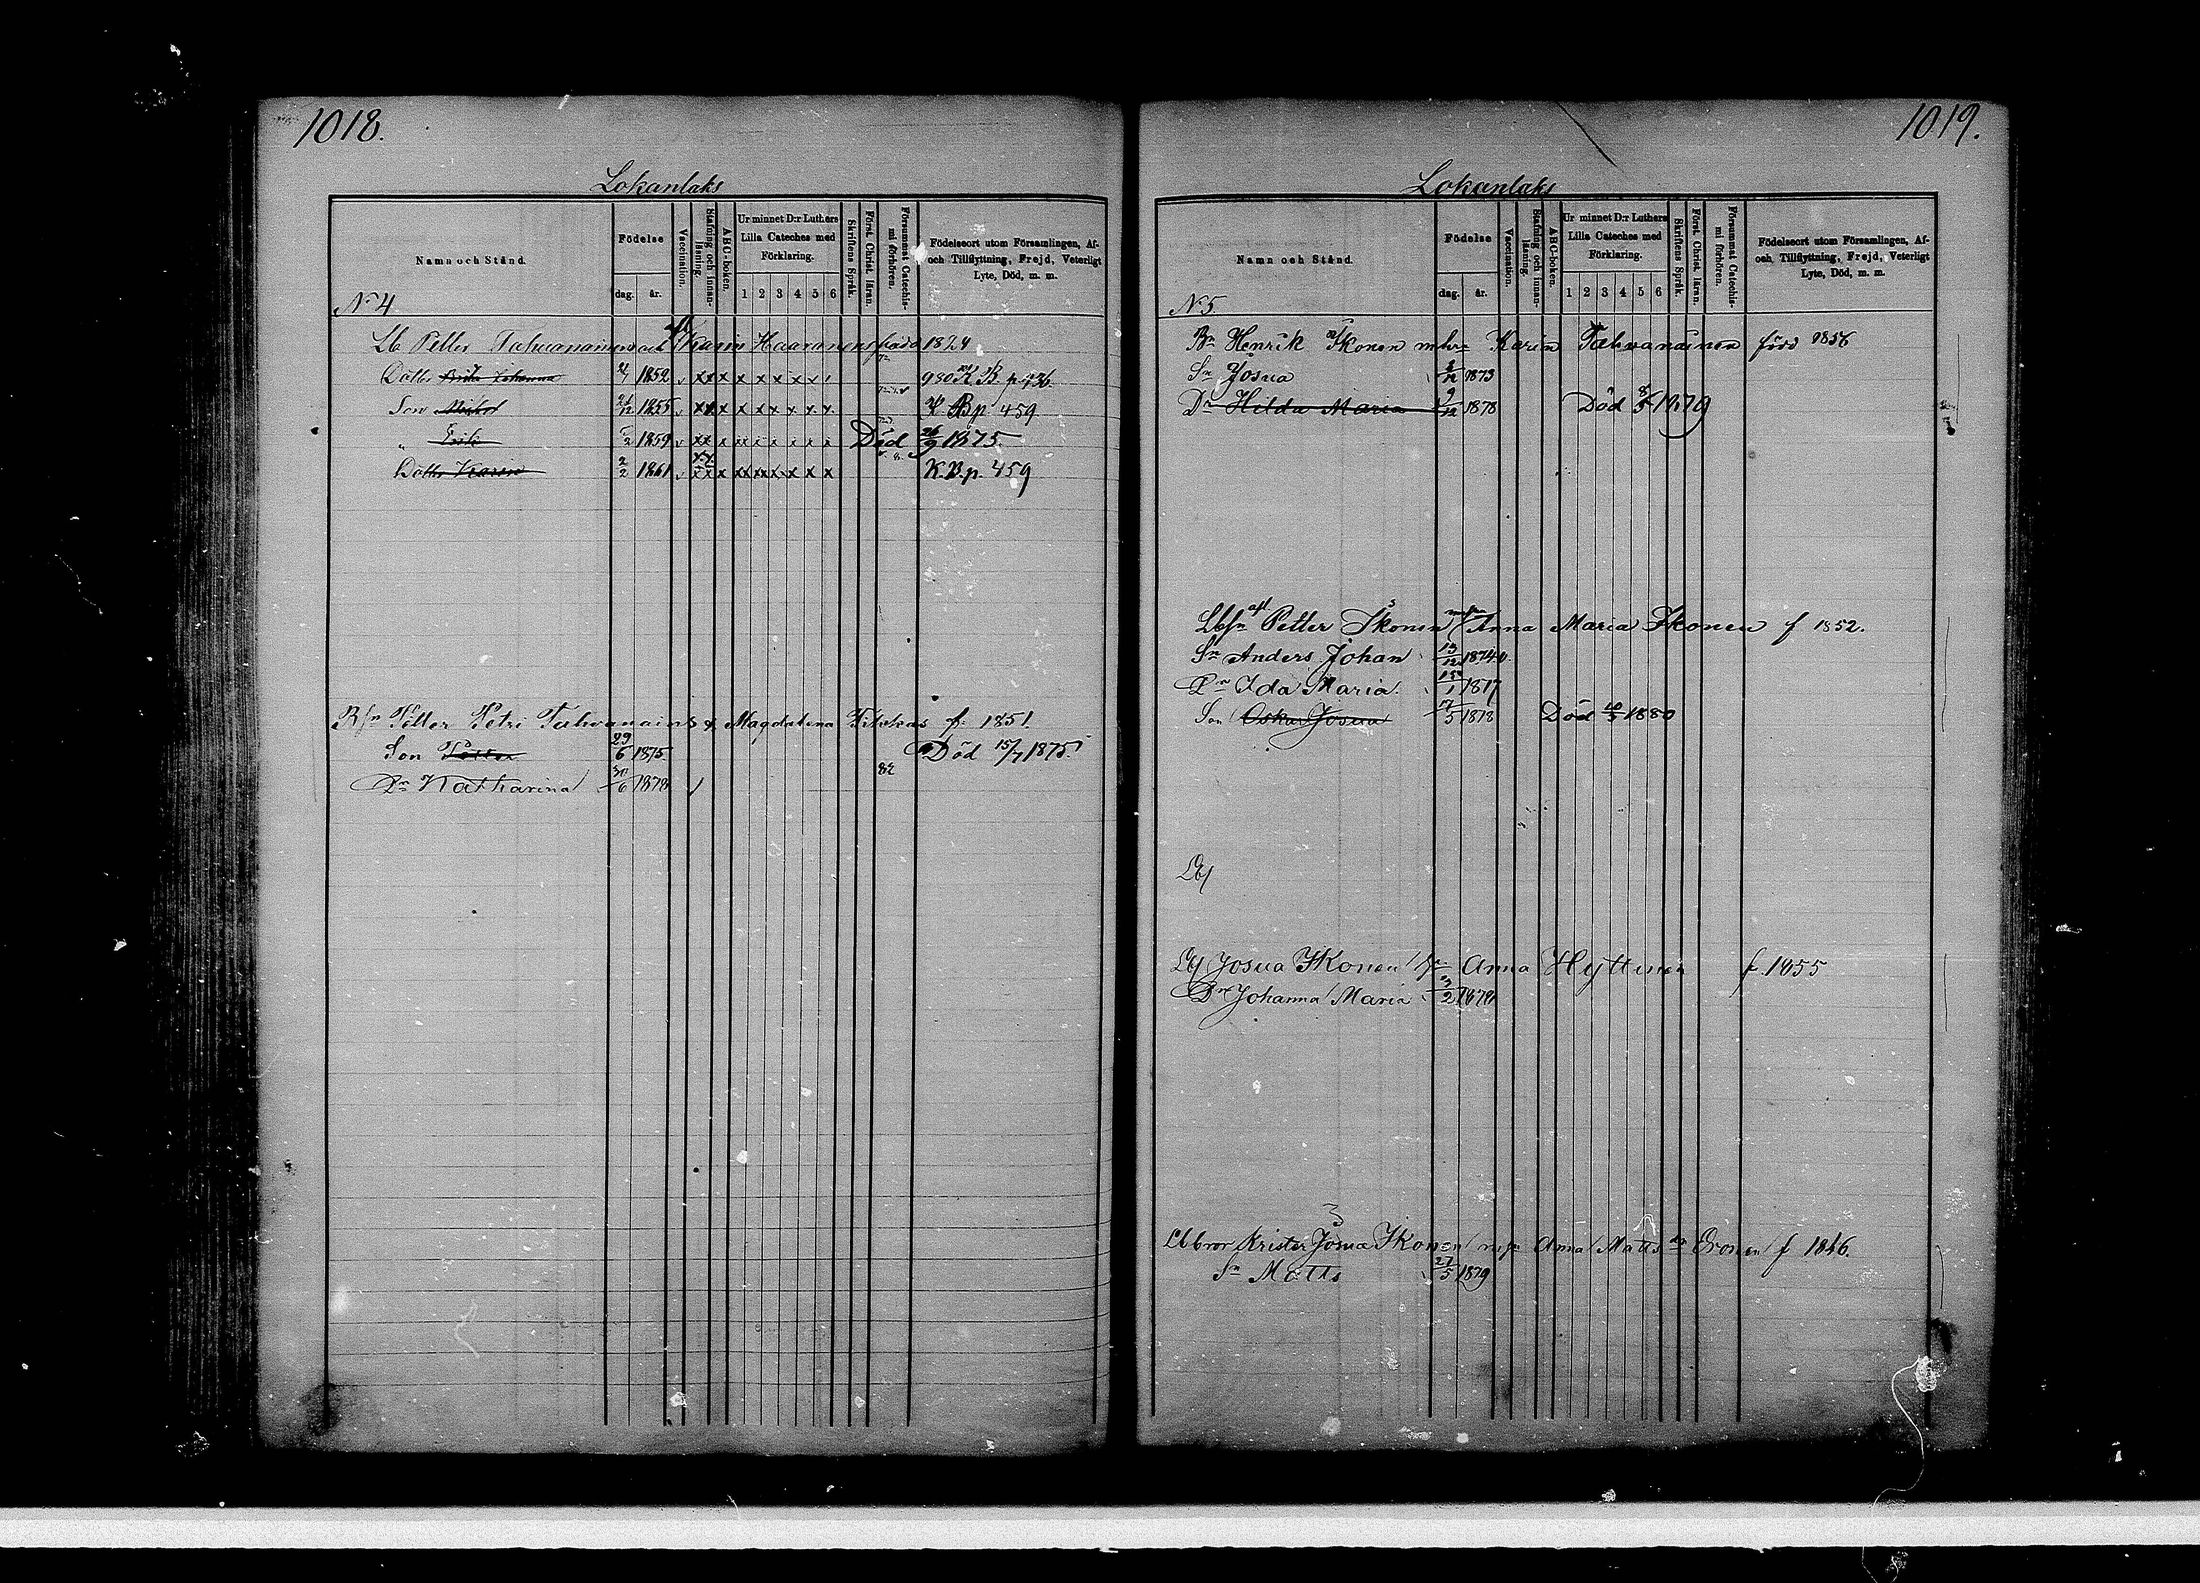 1018.
Lokanlaks
Namn och Stånd.
Födelse
dag. år.
Vaccination.
Stafning och innan-läsning.
ABC-boken.
Ur minnet D:r Luthers Lilla Cateches med Förklaring.
1 2 3 4 5 6
Skriftens Språk.
Först. Christ. läran.
Försummat Catechis-mi förhören.
Födelseort utom Församlingen, Af- och Tillflyttning, Frejd, Veterligt Lyte, Död, m. m.
N:4
Lb Petter Tahvanainen och Karin Haaranen född 1824
Dotter Brita Johanna 1852 v x x x x x x x x K B p 436
Son Mickel 12 1855 v x x x x x x x x x K B p 459
" Erik 2 1859 v x x x x x x x x x Död 26/9 1875
Dotter Karin 2/2 1861 v x x x x x x x x x K.B.p. 459
Petter Petri Tahvanainen & Magdalena f. 1851.
Son Petter 29/6 1875 Död 15/7 1875
Dr Katharina 30/6 1878
82
1019.
Lokanlaks
Namn och Stånd.
Födelse
dag. år.
Vaccination.
Stafning och innan-läsning.
ABC-boken.
Ur minnet D:r Luthers Lilla Cateches med Förklaring.
1 2 3 4 5 6
Skriftens Språk.
Först. Christ. läran.
Försummat Catechis-mi förhören.
Födelseort utom Församlingen, Af- och Tillflyttning, Frejd, Veterligt Lyte, Död, m. m.
N:5
Bn Henrik Ikonen m hu Karin Tahwanainen född 1856
Sn Josua 2/12 1873
Dr Hilda Maria 9/12 1878 Död 1879
Lbsn Petter Ikonen Anna Maria Ikonen f 1852.
Sn Anders Johan 13/12 1874
Dr Ida Maria 1 1877
Son Oskar Josua 7/5 1878 Död 1880
Lbs
Lbs Josua Ikonen Anna Hyttinen f. 1855
Dr Johanna Maria 2 1878
Lb bror Krister Josua Ikonen Anna Matts dr Oronen f 1846.
Sn Matts 27/5 1879